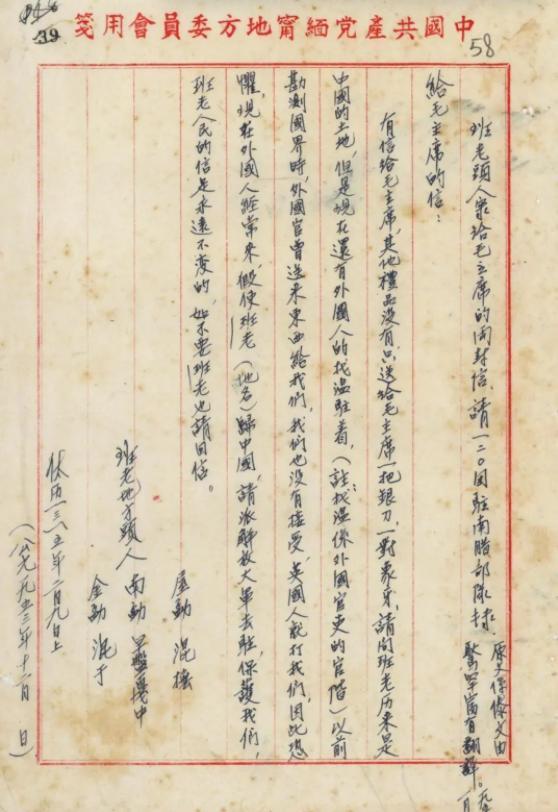 中國共產党緬甯地方委員會用箋
39
58
班老頭人寨給毛主席的兩封信，請一二○團駐南腊部隊
原文係傣文由
有翻譯。
給毛主席的信：
有信給毛主席，其他禮品没有，只送給毛主席一把銀刀，一對象牙，請問班老历来是
中國的土地，但是現在還有外國人的找温駐着，（註：找温係外國官吏的官階）以前
勘測國界時，外國官曾送来東西給我們，我們也没有接受，英國人就打我們，因此恐
懼，現在外國人經常来，假使班老（地名）歸中國，請派解放大軍去駐，保護我們，
班老人民的信是永遠不变的，如不要班老也請回信。
屋勐 混
班老地方頭人 南勐 中
金勐 混才
傣历一三一五年二月九日上
（公元一九五三年十二月 日）